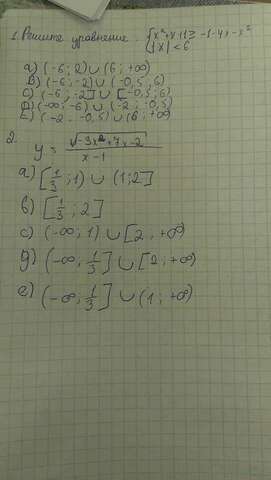 1. Решите уравнение. { x²+x+1≥-1-4x-x²
|x| < 6
а) (-6; 2) ∪ (6; +∞)
В) (-6; -2) ∪ (-0,5; 6)
С) (-6; -2] ∪ [-0,5; 6)
Д) (-∞; -6) ∪ (-2; -0,5)
Е) (-2; -0,5) ∪ (6; +∞)
2. y = √-3x²+7x-2 / x-1
а) [1/3; 1) ∪ (1; 2]
в) [1/3; 2]
с) (-∞; 1) ∪ [2; +∞)
д) (-∞; 1/3] ∪ [2; +∞)
е) (-∞; 1/3] ∪ (1; +∞)